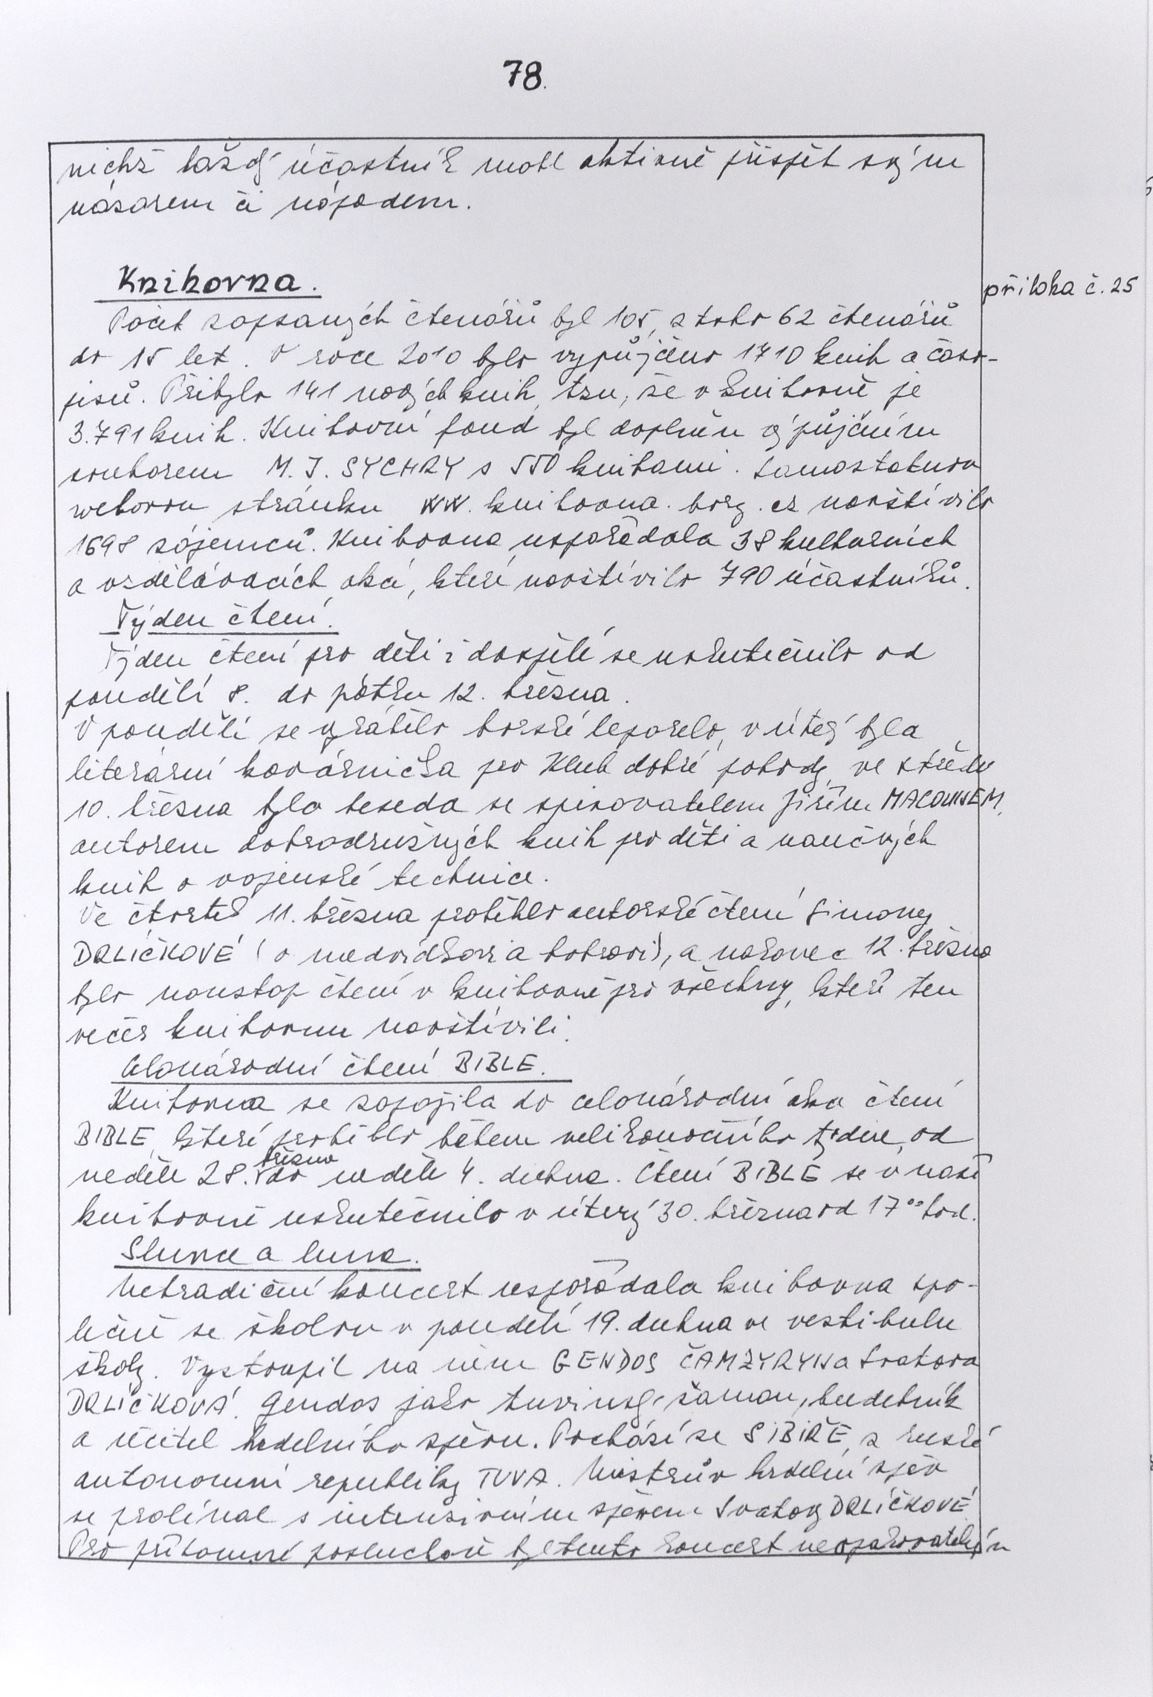 78.
nichž každý účastník mohl aktivně přispět svým
názorem či nápadem.
Knihovna.
příloha č. 25
Počet zapsaných čtenářů byl 105, z toho 62 čtenářů
do 15 let. V roce 2010 bylo vypůjčeno 1710 knih a časo-
pisů. Přibylo 141 nových knih, tzn., že v knihovně je
3.791 knih. Knihovní fond byl doplněn výpůjčním
souborem M. J. SYCHRY s 550 knihami. Samostatnou
webovou stránku WW. knihovna. borg. cz navštívilo
1698 zájemců. Knihovna uspořádala 38 kulturních
a vzdělávacích akcí, které navštívilo 790 účastníků.
Týden čtení.
Týden čtení pro děti i dospělé se uskutečnilo od
pondělí 8. do pátku 12. března.
V pondělí se vracelo borské leporelo, v úterý byla
literární kavárnička pro Klub dobré pohody, ve středu
10. března byla beseda se spisovatelem Jiřím
autorem dobrodružných knih pro děti a naučných
knih o vojenské technice.
Ve čtvrtek 11. března proběhlo autorské čtení Simony
DRLÍČKOVÉ (o medvídkovi a bobrovi), a nakonec 12. března
bylo nonstop čtení v knihovně pro všechny, kteří ten
večer knihovnu navštívili.
Celonárodní čtení BIBLE.
Knihovna se zapojila do celonárodní akce čtení
BIBLE, které probíhlo během velikonočního týdne, od
neděle 28. března do neděle 4. dubna. Čtení BIBLE se v naší
knihovně uskutečnilo v úterý 30. března od 17°° hod.
Slunce a luna.
Netradiční koncert uspořádala knihovna spo-
lečně se školou v pondělí 19. dubna ve vestibulu
školy. Vystoupil na něm GENDOS ČAMZYRYN a Svatava
DRLÍČKOVÁ. Gendos jako tuvinský šaman, hudebník
a učitel hrdelního zpěvu. Pochází ze SIBIŘE, z ruské
autonomní republiky TUVA. Mistrův hrdelní zpěv
se prolínal s intenzivním zpěvem Svatavy DRLÍČKOVÉ.
Pro přítomné posluchače byl tento koncert neopakovatelným